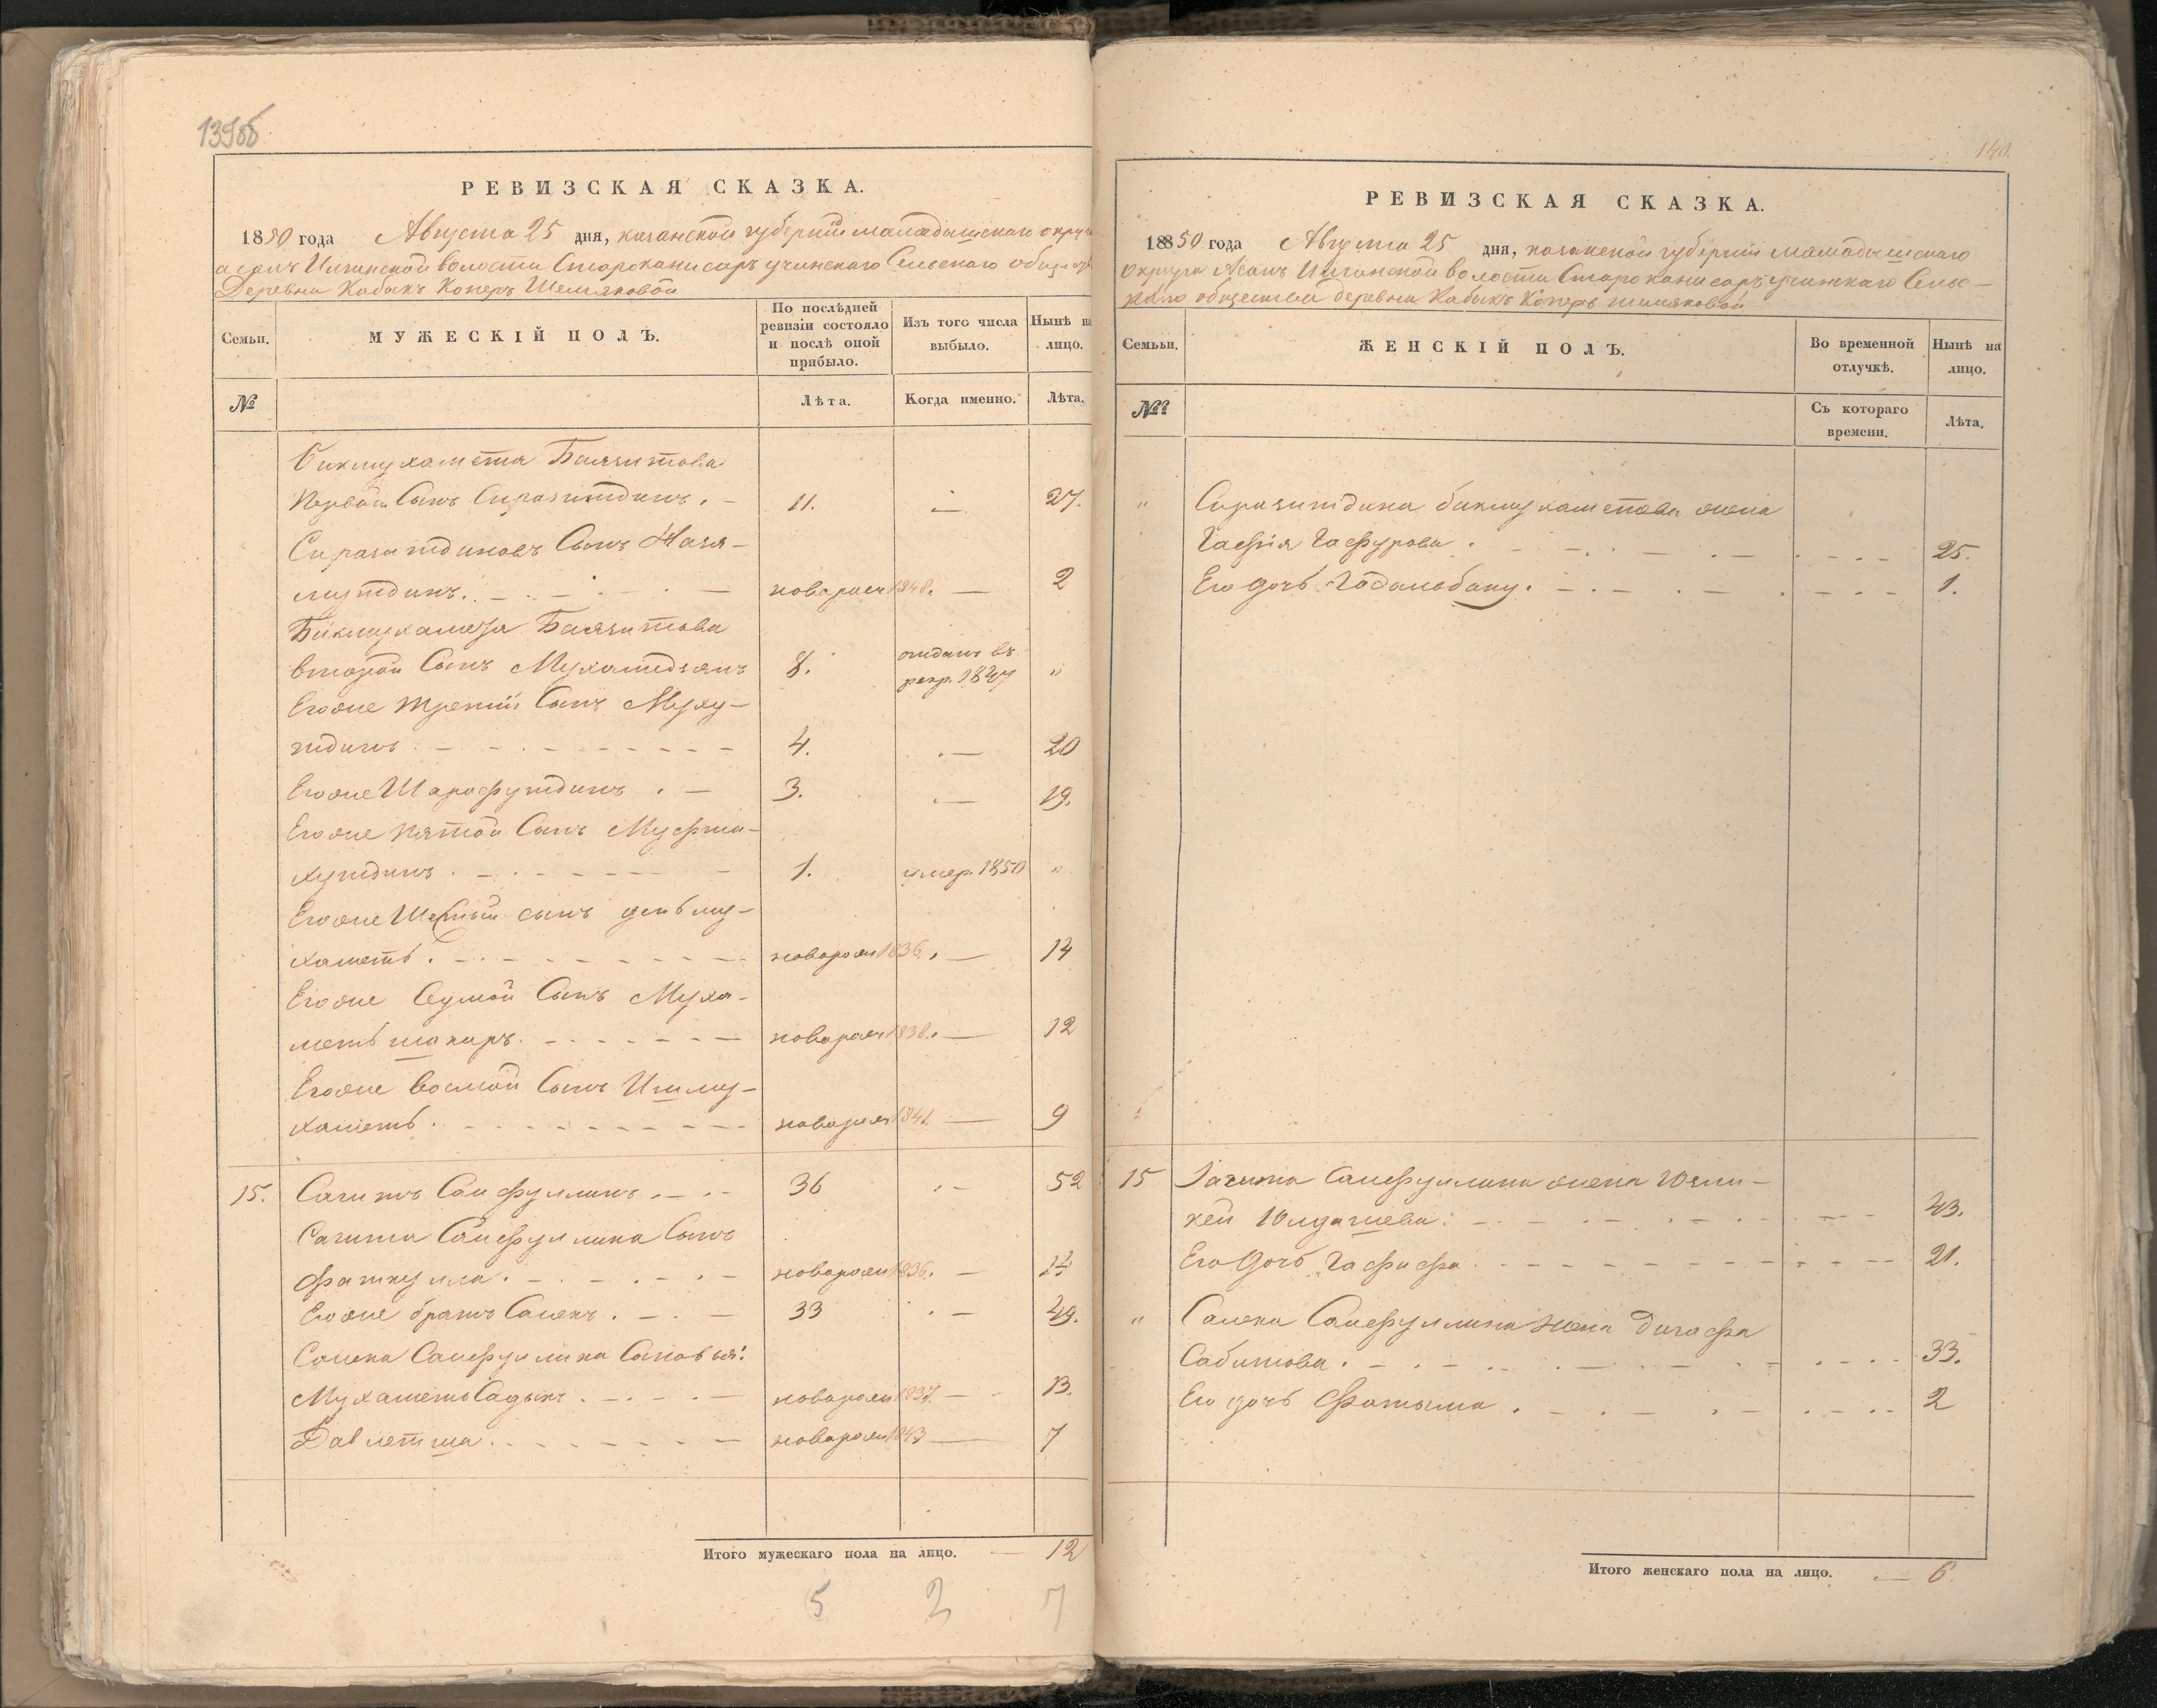 139об
РЕВИЗСКАЯ СКАЗКА.
1850 года Августа 25 дня, казанской губернии мамадышскаго округа
Асанъ Илганской волости Староканисаръ учинскаго Сельскаго общества
Деревни Кабыкъ Коперъ Шемяковой
Семьи.
МУЖЕСКІЙ ПОЛЪ.
По послѣдней ревизіи состояло и послѣ оной прибыло.
Изъ того числа выбыло.
Нынѣ на лицо.
№
Лѣта.
Когда именно.
Лѣта.
Бикмухаметя Баязитова
Первый Сынъ Сиразитдинъ. 11. 27.
Сиразитдиновъ Сынъ Назя-
мутдинъ. новорож 1848. 2
Бикмухаметя Баязитова
второй Сынъ Мухамедзянъ 8. отданъ въ рекр. 1847 "
Егоже третій Сынъ Муху-
тдинъ 4. 20
Егоже Шарафутдинъ 3. 19.
Егоже пятой Сынъ Мифта-
хутдинъ 1. умер. 1850 "
Егоже Шестый сынъ
хаметь. новорож 1836. 14
Егоже Седмой Сынъ Муха-
меть шакиръ. новорож 1838. 12
Егоже восмой Сынъ Ишму-
хаметь. новорож 1841. 9
15. Сагитъ Сайфуллинъ 36 52
Сагита Сайфуллина Сынъ
Фаткулла. новорож 1836. 14
Егоже братъ Салехъ. 33 49.
Салеха Сайфуллина Сыновья:
Мухаметь Садыкъ. новорож 1837 13.
Давлетша. новорож 1843 7
Итого мужескаго пола на лицо. 12
5 2 7
140.
РЕВИЗСКАЯ СКАЗКА.
1850 года Августа 25 дня, казанской губерніи мамадышскаго
округа Асанъ Илганской волости Старо канисаръ учинскаго Сель-
скаго общества деревни Кабыкъ Коперъ шемяковой
Семьи.
ЖЕНСКІЙ ПОЛЪ.
Во временной отлучкѣ.
Нынѣ на лицо.
№
Съ котораго времени.
Лѣта.
" Сиразитдина бикмухаметева жена
Гафія Гафурова. 25.
Его дочь 1.
15 Загита Сайфуллина жена Юзли-
кей Юлдашева. 43.
Его дочь Гафифа 21.
" Салеха Сайфуллина жена
Сабитова. 33.
Его дочь Фатыма. 2
Итого женскаго пола на лицо. 6.